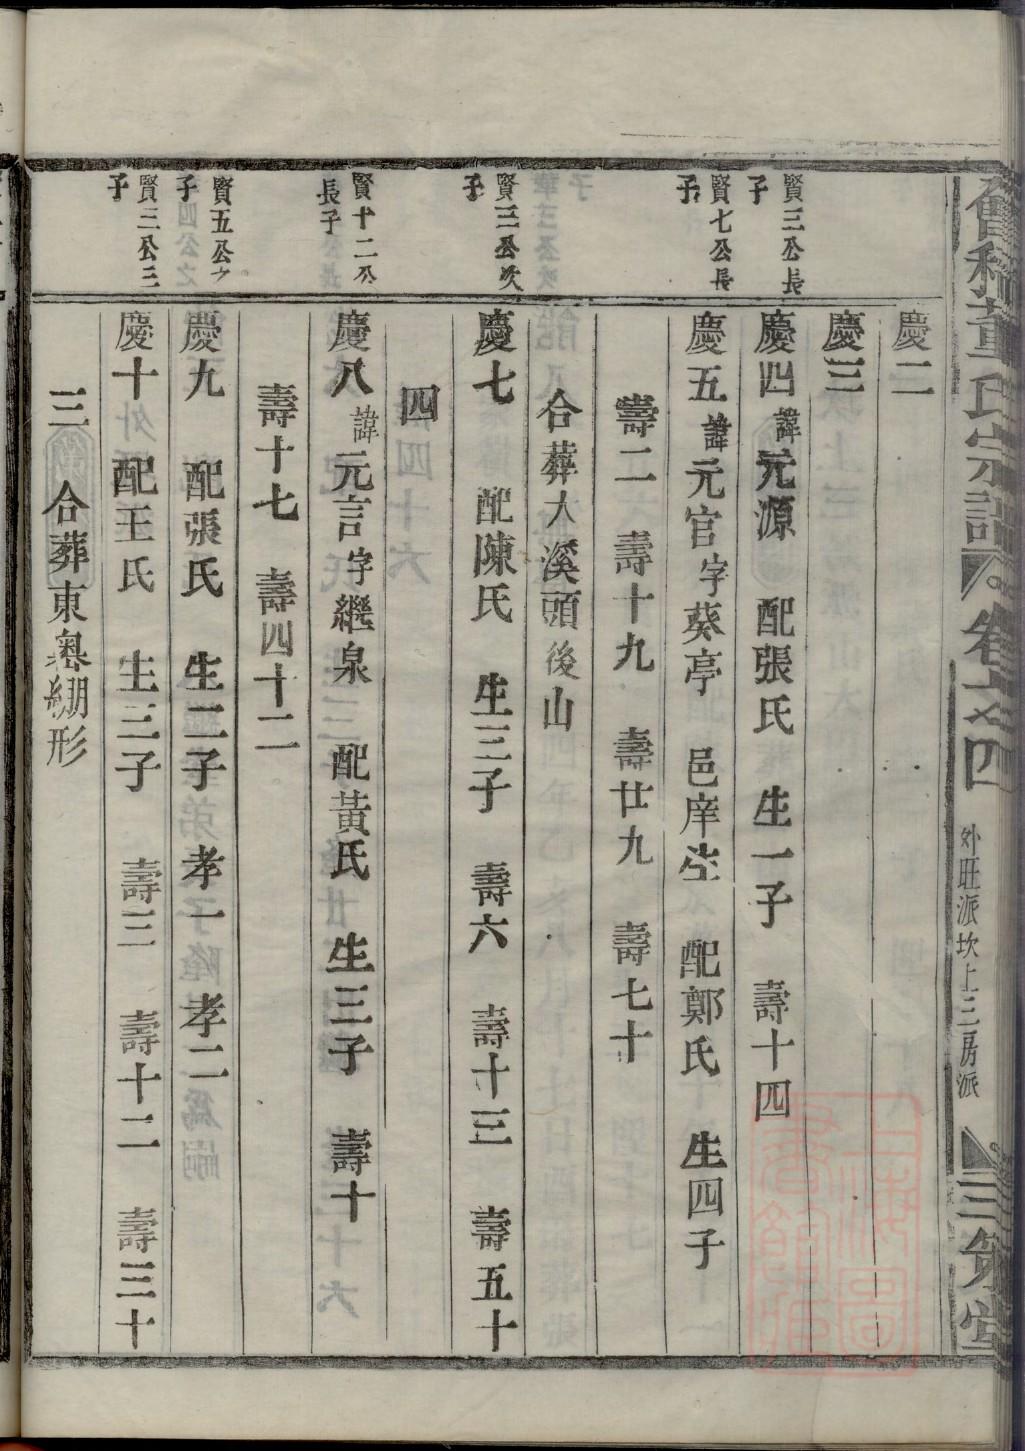 舊稱董氏宗譜 卷之四 外旺派坎上三房派 三策堂
慶二
慶三
賢三公長子
慶四 諱元源 配張氏 生一子 壽十四
賢七公長子
慶五 諱元官 字葵亭 邑庠生 配鄭氏 生四子
壽二 壽十九 壽廿九 壽七十
合葬大溪頭後山
賢三公次子
慶七 配陳氏 生三子 壽六 壽十三 壽五十
四
賢十二公長子
慶八 諱元言 字繼泉 配黃氏 生三子 壽十
壽十七 壽四十二
賢五公之子
慶九 配張氏 生二子 孝一 孝二
賢三公三子
慶十 配王氏 生三子 壽三 壽十二 壽三十
三 合葬東粵綳形